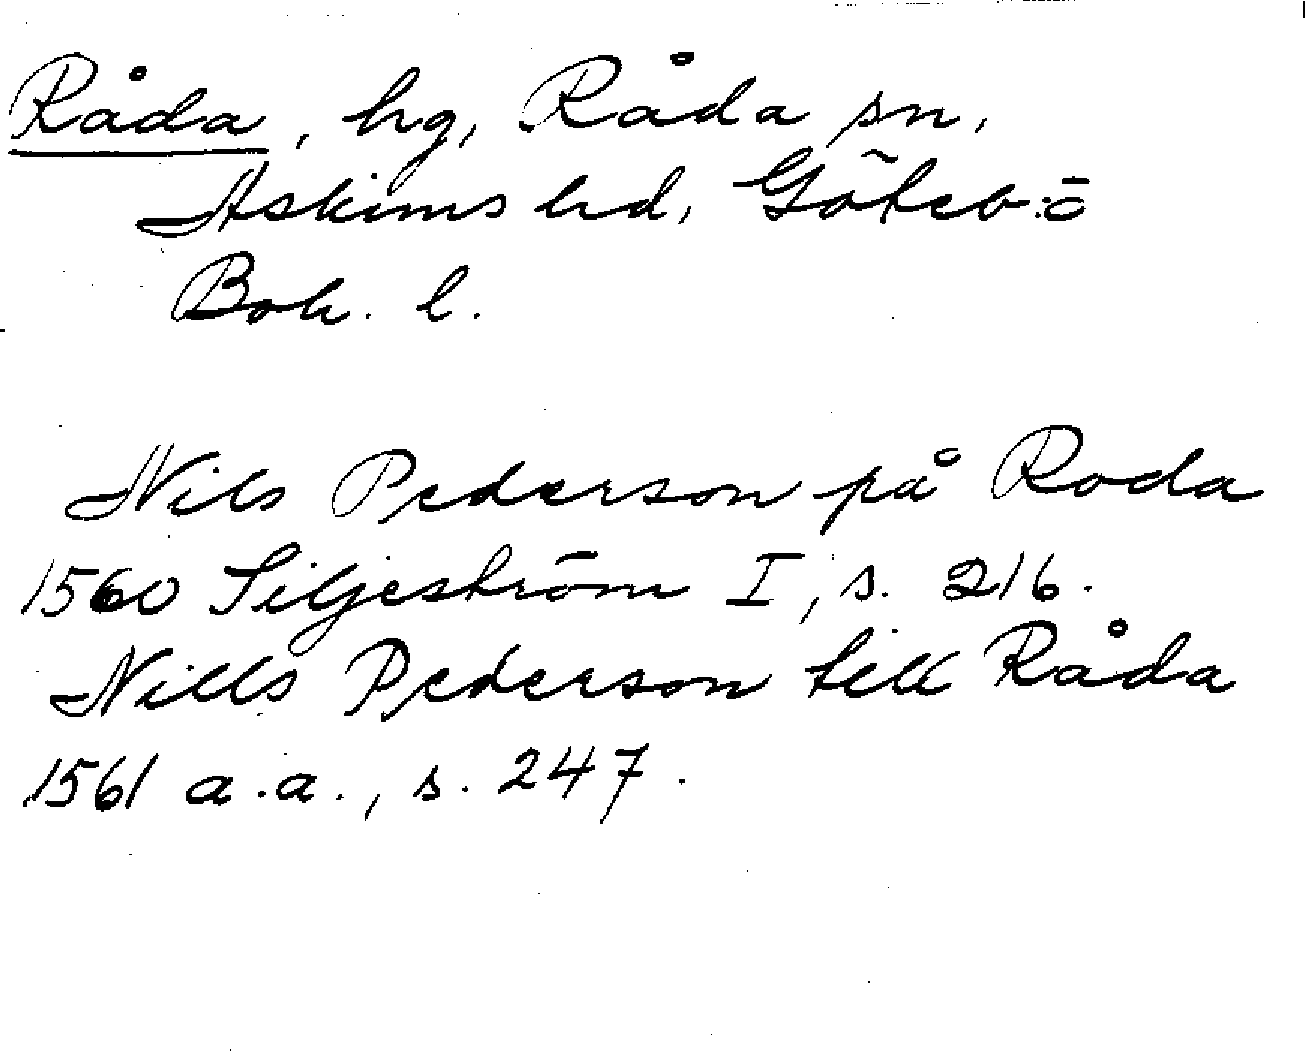 Råda, hg, Råda sn,
Askims hd, Göteb. o
Boh. l.
Nils Pederson på Roda
1560 Siljeström I, s. 216.
Nills Pederson till Råda
1561 a.a., s. 247.